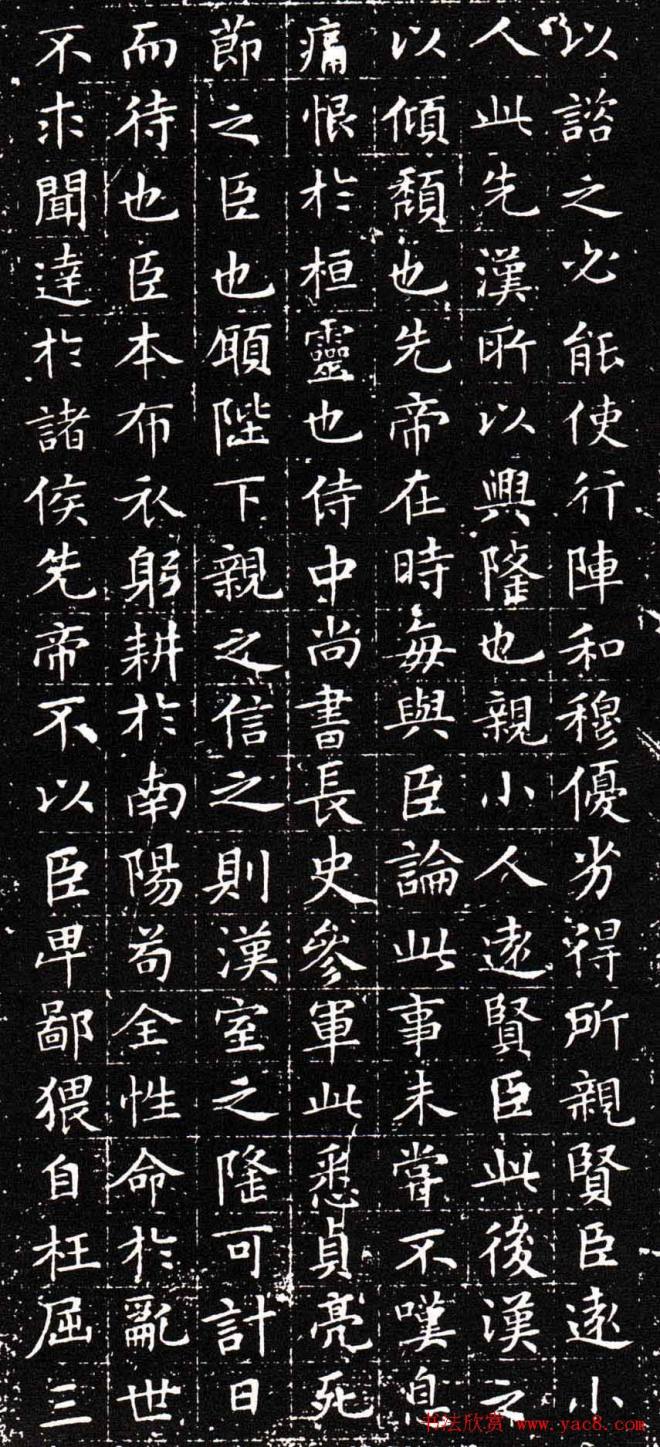 以諮之必能使行陣和穆優劣得所親賢臣遠小
人此先漢所以興隆也親小人遠賢臣此後漢之
以傾頽也先帝在時每與臣論此事未嘗不嘆息
痛恨於桓靈也侍中尚書長史參軍此悉貞亮死
節之臣也願陛下親之信之則漢室之隆可計日
而待也臣本布衣躬耕於南陽苟全性命於亂世
不求聞達於諸侯先帝不以臣卑鄙猥自枉屈三
书法欣赏 www.yac8.com